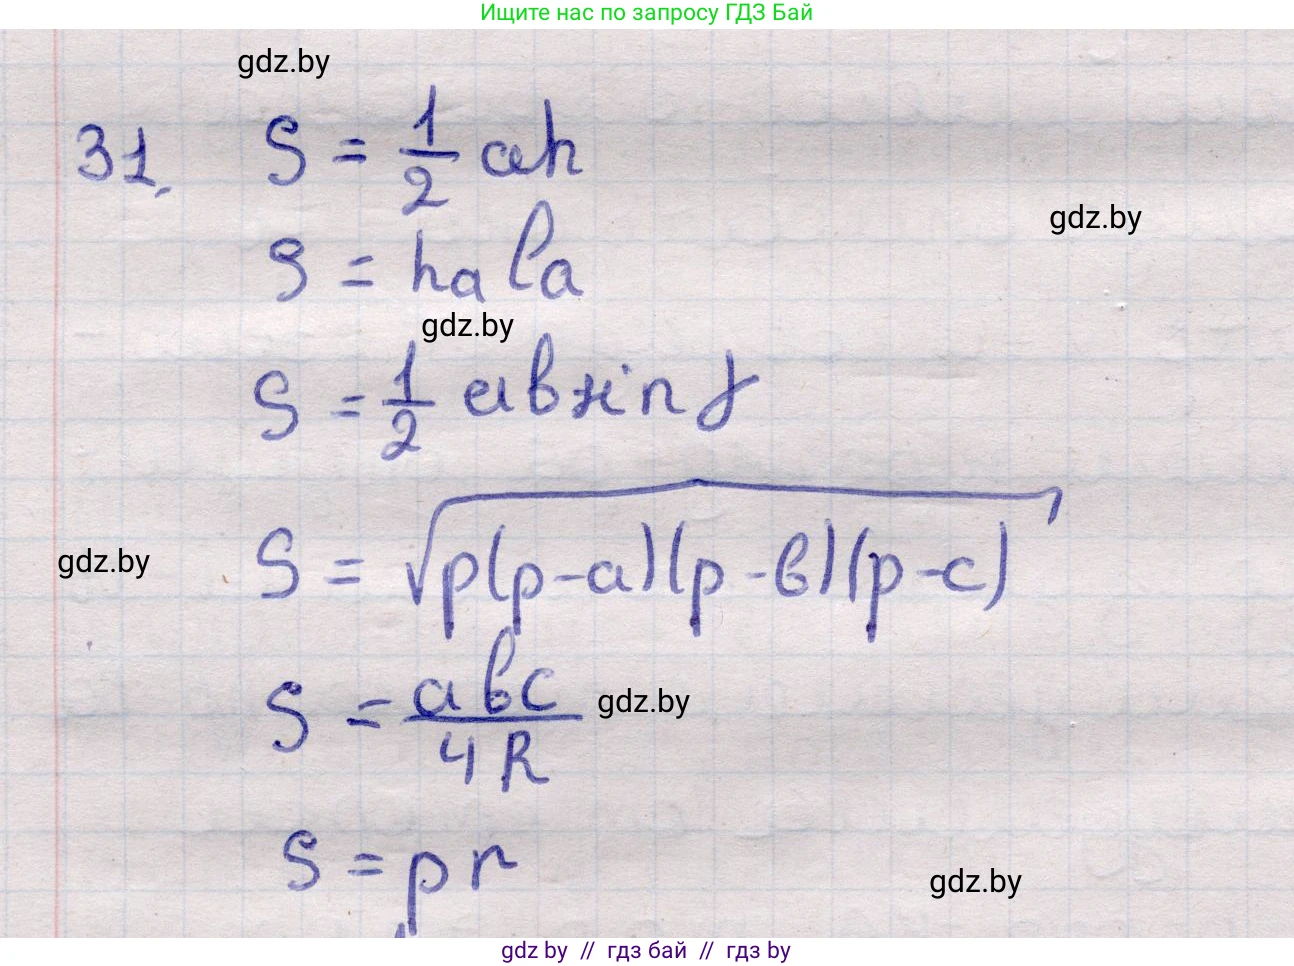 Ищите нас по запросу ГДЗ Бай
gdz.by
31. S = 1/2 ah
gdz.by
S = hₐ lₐ
gdz.by
S = 1/2 ab sin γ
S = √(p(p-a)(p-b)(p-c))
gdz.by
S = abc/4R
gdz.by
S = pr
gdz.by
gdz by // гдз бай // гдз by